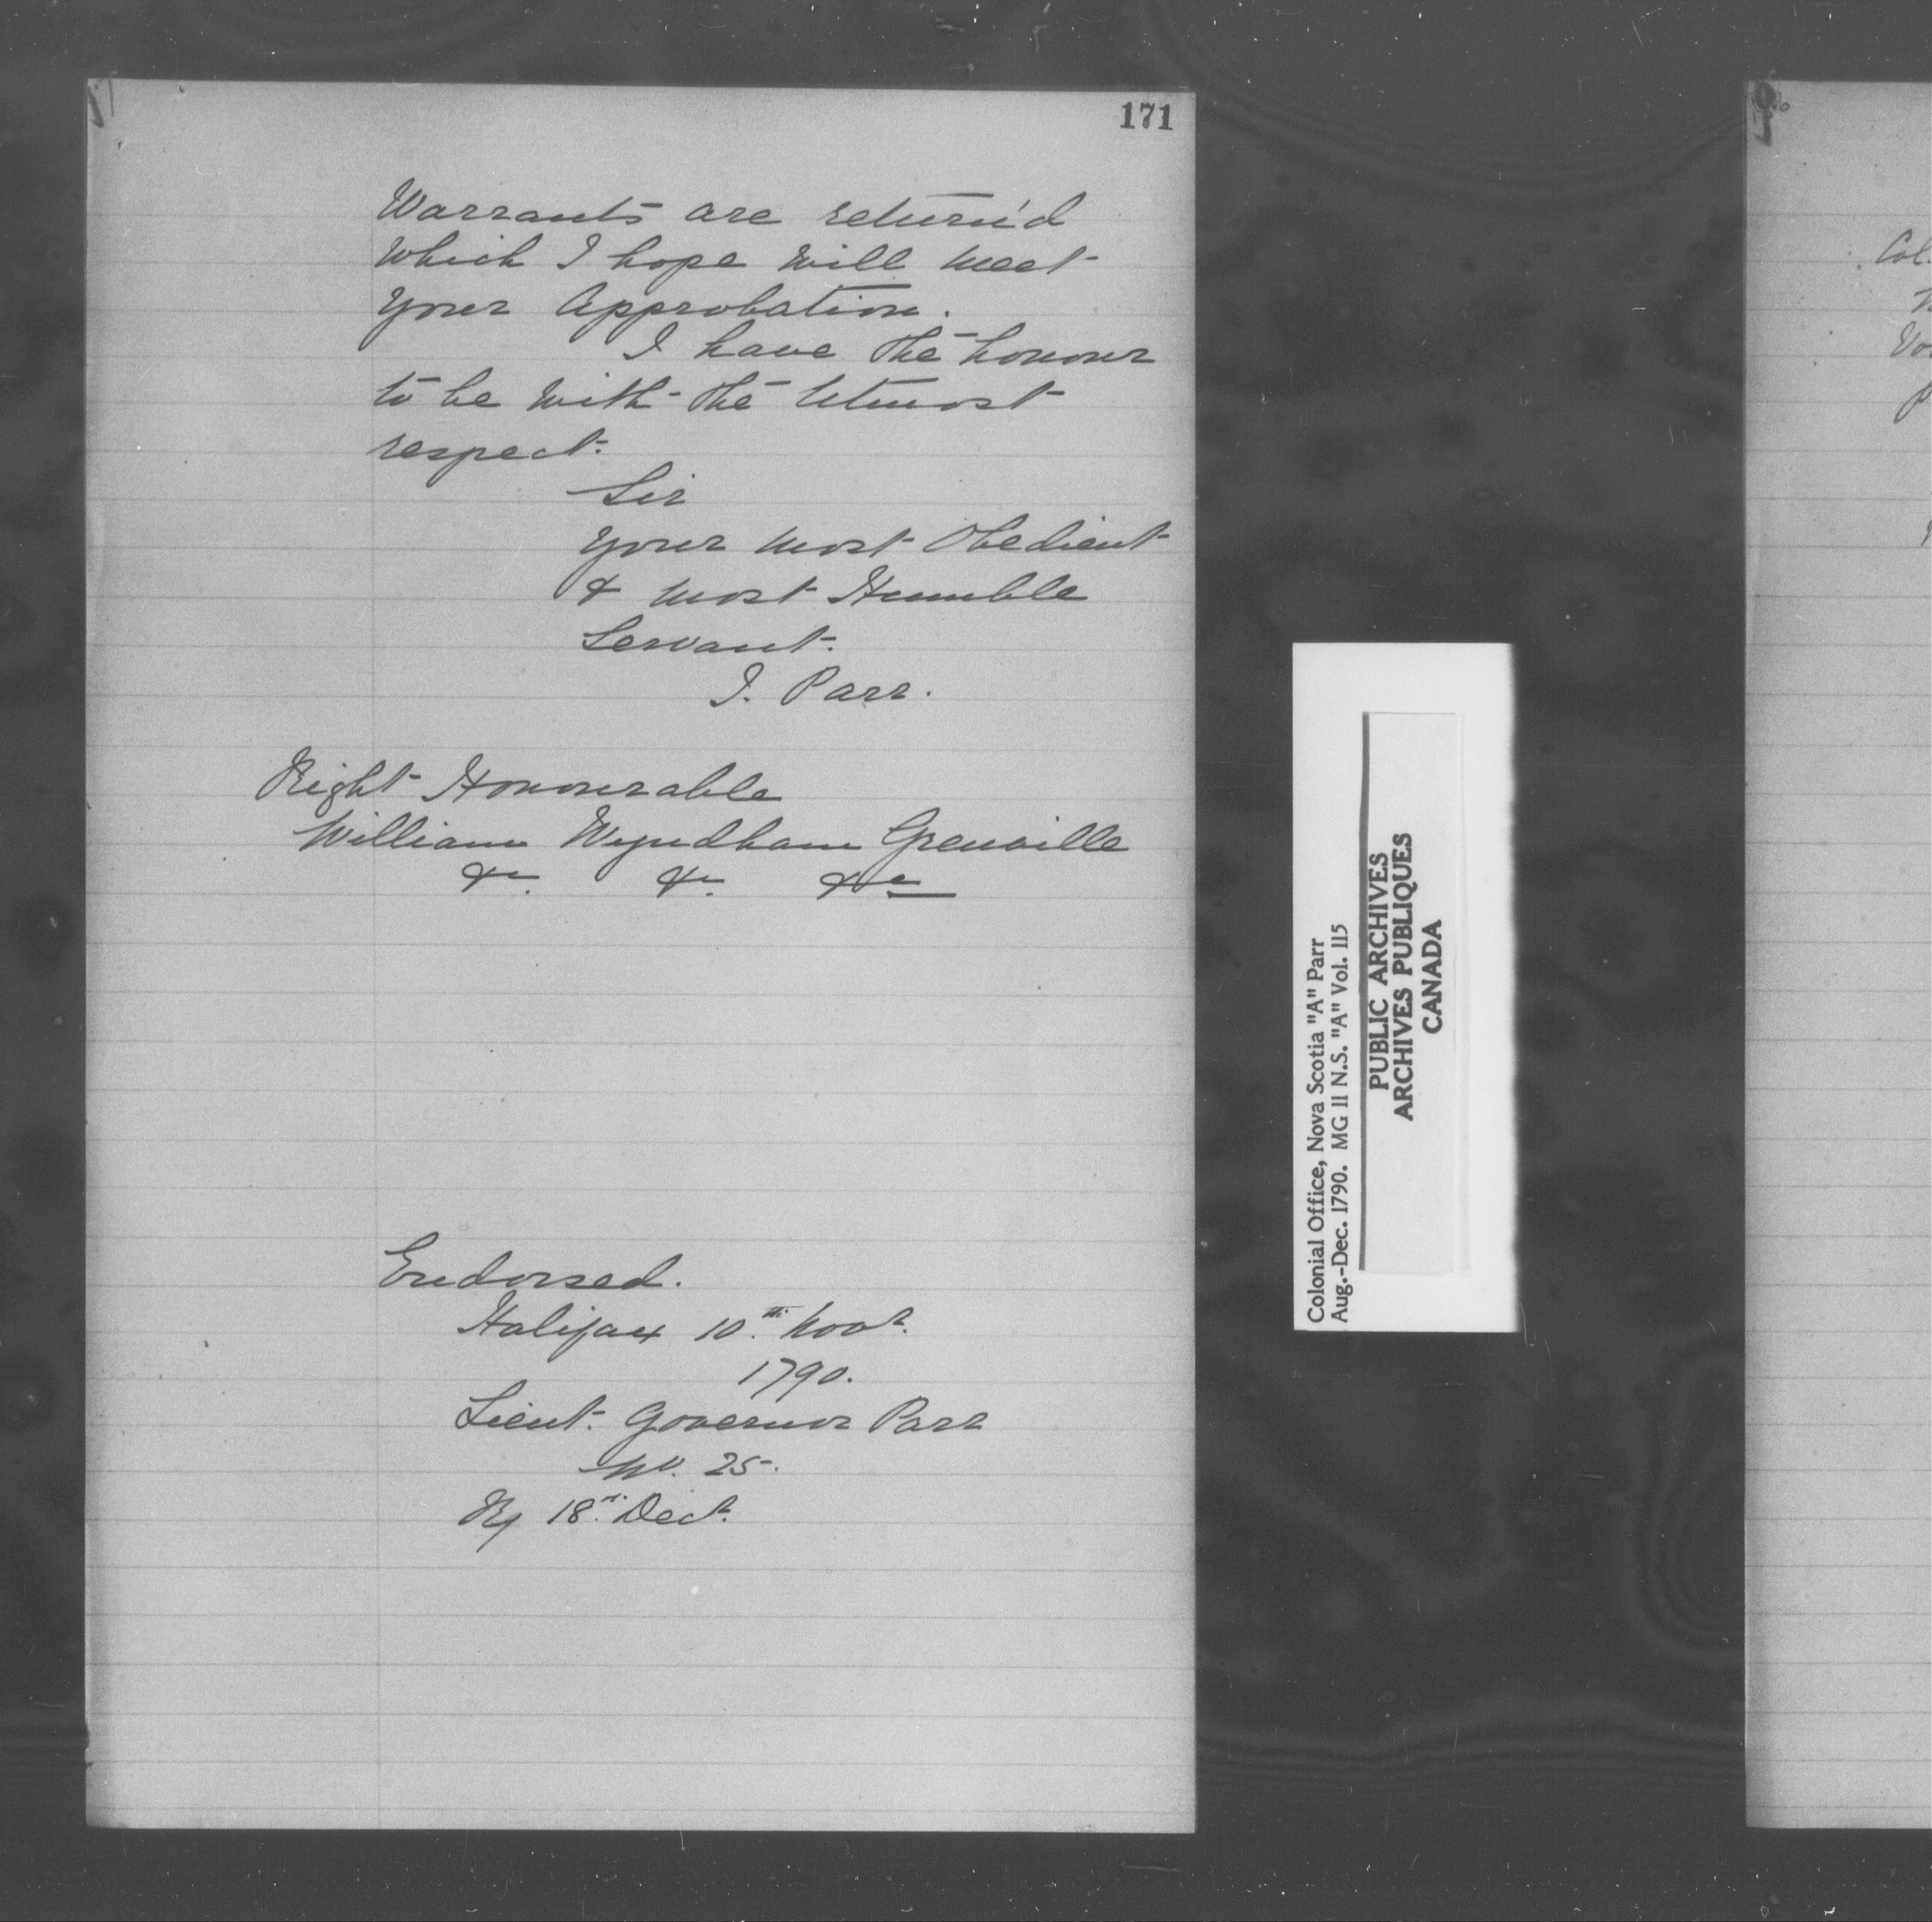 171
Warrants are return'd
which I hope will meet
your Approbation.
I have the honour
to be with the Utmost
respect.
Sir
Your most Obedient
& most Humble
Servant.
J. Parr.
Right Honourable
William Wyndham Grenville
&c. &c. &c
Endorsed.
Halifax 10th. Novr.
1790.
Lieut. Governor Parr
No. 25.
Rx 18th. Decr.
Colonial Office, Nova Scotia "A" Parr
Aug.-Dec. 1790. MG 11 N.S. "A" Vol. 115
PUBLIC ARCHIVES
ARCHIVES PUBLIQUES
CANADA
Col.